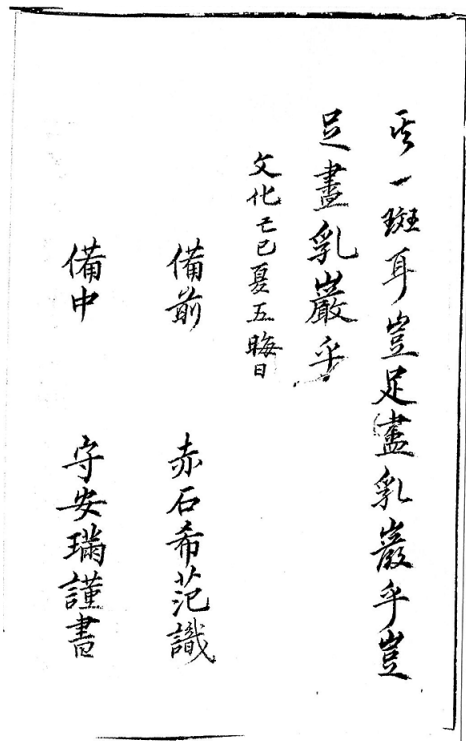 其一斑耳豈足盡乳巖乎豈
足盡乳巖乎
文化己巳夏五晦日
備前　赤石希范識
備中　守安璊謹書